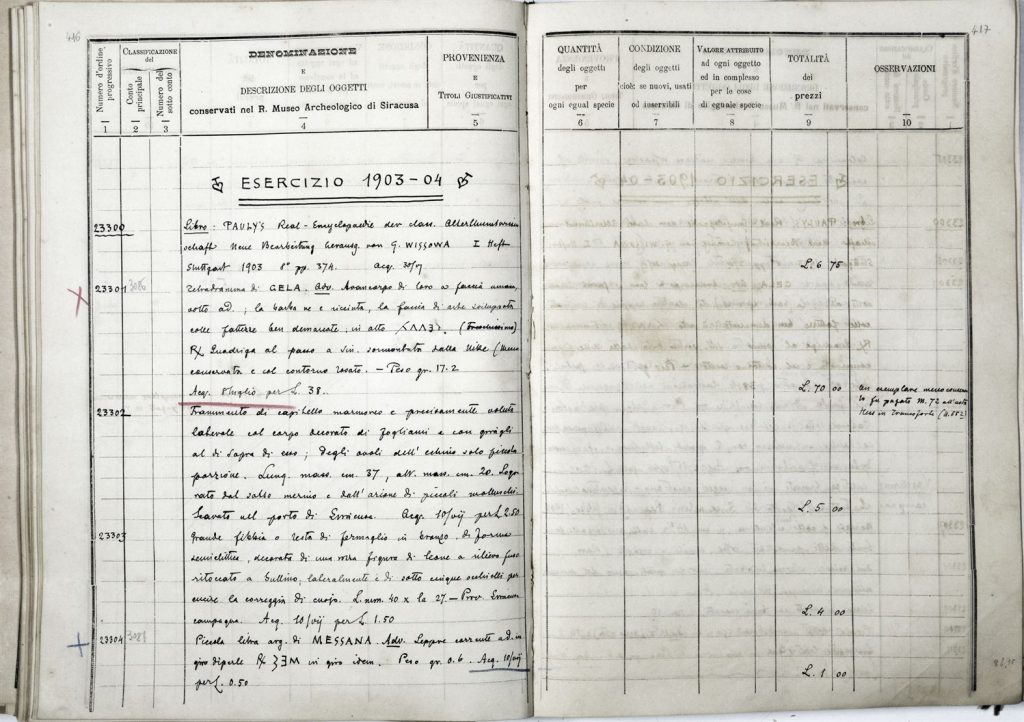 416
Numero d'ordine progressivo
CLASSIFICAZIONE del
Conto principale
Numero del sotto conto
DENOMINAZIONE
E
DESCRIZIONE DEGLI OGGETTI
conservati nel R. Museo Archeologico di Siracusa
PROVENIENZA
E
TITOLI GIUSTIFICATIVI
1
2
3
4
5
ESERCIZIO 1903-04
23300
Libro: PAULY'S Real-Encyclopaedie der class. Alterthumswissen
schaft Neue Bearbeitung herausg. von G. WISSOWA I Heft
Stuttgart 1903 8° pp. 374. Acq. 30/vj
23301 3086
Tetradramma di GELA. Adv. Avancorpo di toro a faccia umana,
volto ad.; la barba
colle fattezze ben demarcate; in alto
R/ Quadriga al passo a sin. sormontata dalla Nike (meno
conservata e col contorno rosato. - Peso gr. 17.2
Acq. luglio per L. 38..
23302
Frammento di capitello marmoreo e precisamente voluta
laterale col corpo decorato di fogliami e con
al di sopra di esso; degli ovoli dell'echino solo piccola
porzione. Lung. mass. cm. 37, alt. mass. cm. 20. Logo
rato dal salso marino e dall'azione di piccoli molluschi.
Scavato nel porto di Siracusa. Acq. 10/vij per L. 2.50
23303
Grande fibbia o testa di fermaglio in bronzo, di forma
semiellittica, decorata di una rozza figura di leone a rilievo fuso
ritoccato a bullino, lateralmente e di sotto cinque occhielli per
cucire la correggia di cuojo. L. mm. 40 x la 27. - Prov. Siracusa
campagna. Acq. 10/vij per L. 1.50
23304
Piccola litra arg. di MESSANA. Adv. Leppre corrente ad. in
giro di perle R/ in giro idem. Peso gr. 0.6. Acq. 10/vij
per L. 0.50
417
QUANTITÀ
degli oggetti
per
ogni egual specie
CONDIZIONE
degli oggetti
cioè: se nuovi, usati
od inservibili
VALORE ATTRIBUITO
ad ogni oggetto
od in complesso
per le cose
di eguale specie
TOTALITÀ
dei
prezzi
OSSERVAZIONI
6
7
8
9
10
L. 6 75
L. 70 00
Un esemplare meno conserva
to fu pagato M. 72 all'asta
Hess in Francoforte (N. 852)
L. 5 00
L. 4 00
L. 1 00